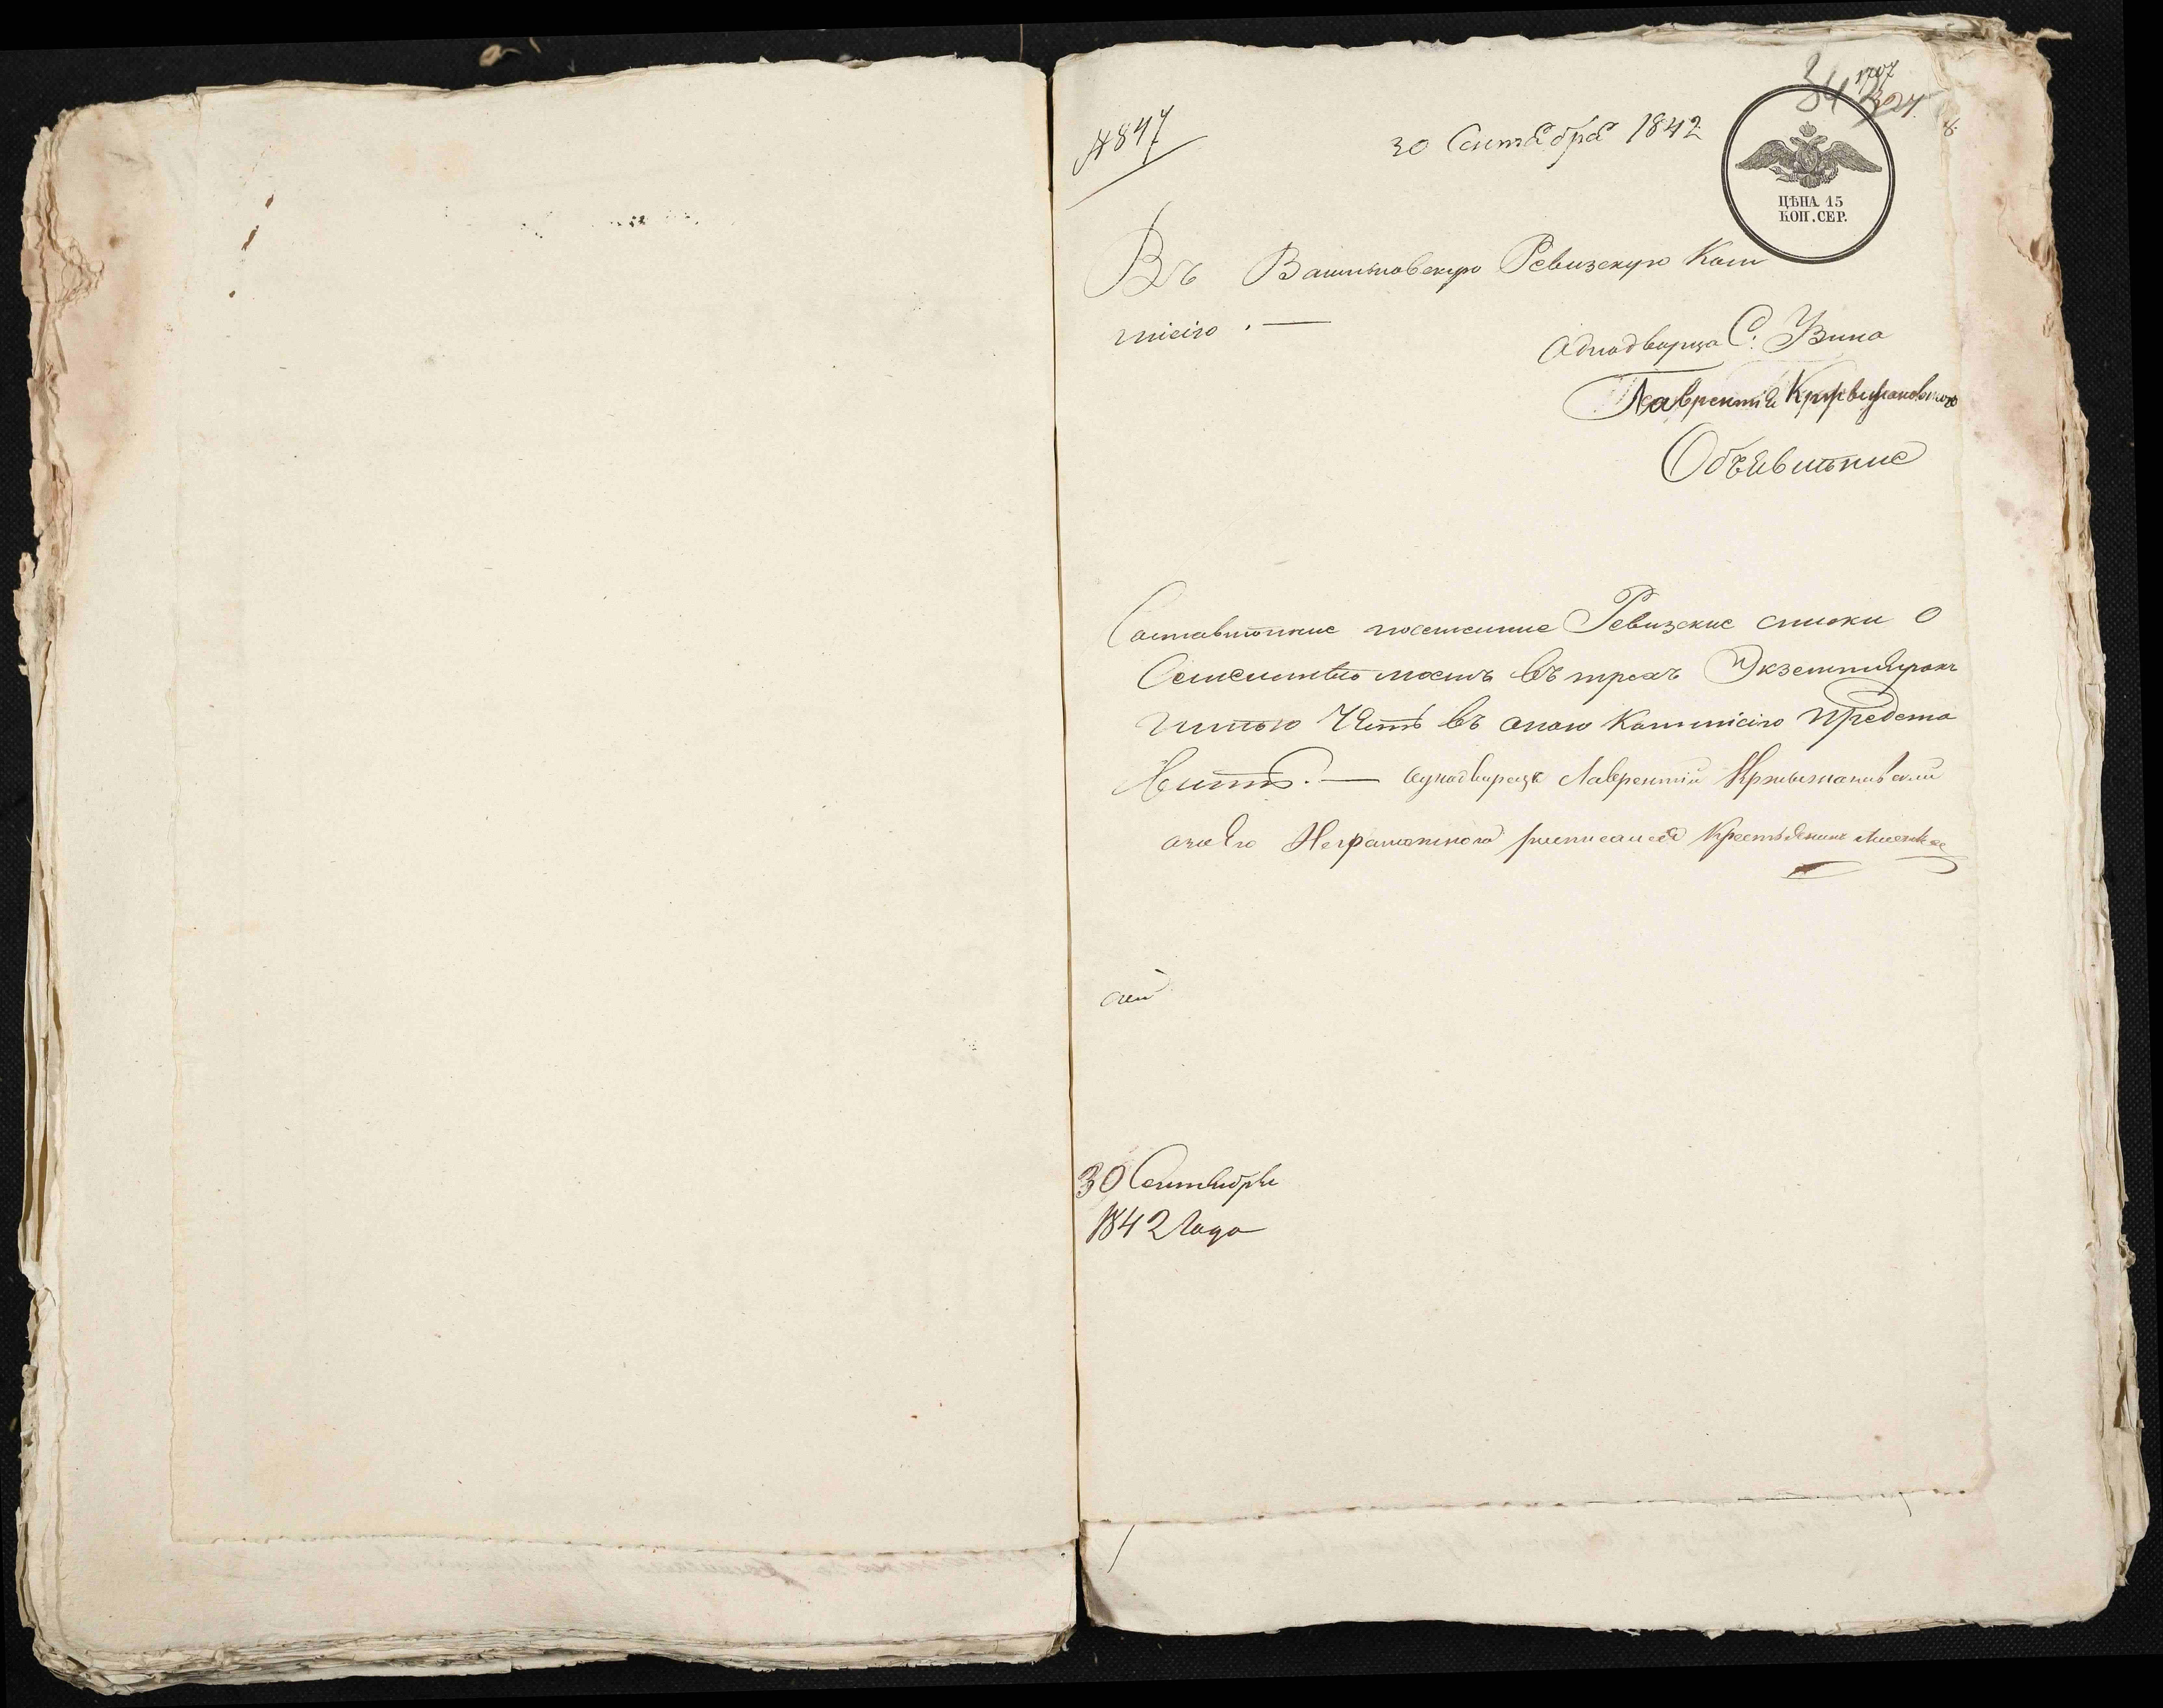 № 847
30 Сентября 1842
ЦѢНА 15
КОП. СЕР.
Въ Ревизскую Ком
мисію . —
Однодворца С.
Лаврентія Крживжановского
Объявленіе
Составленные посемейные Ревизские списки О
Семействе моемъ въ трехъ Экземплярахъ
Имею Честь въ оною Коммисію Предста
вить. — Однодворецъ Лаврентій Крживжановский
а за Его Неграмотного росписался Крестьянинъ
30 Сентября
1842 Года